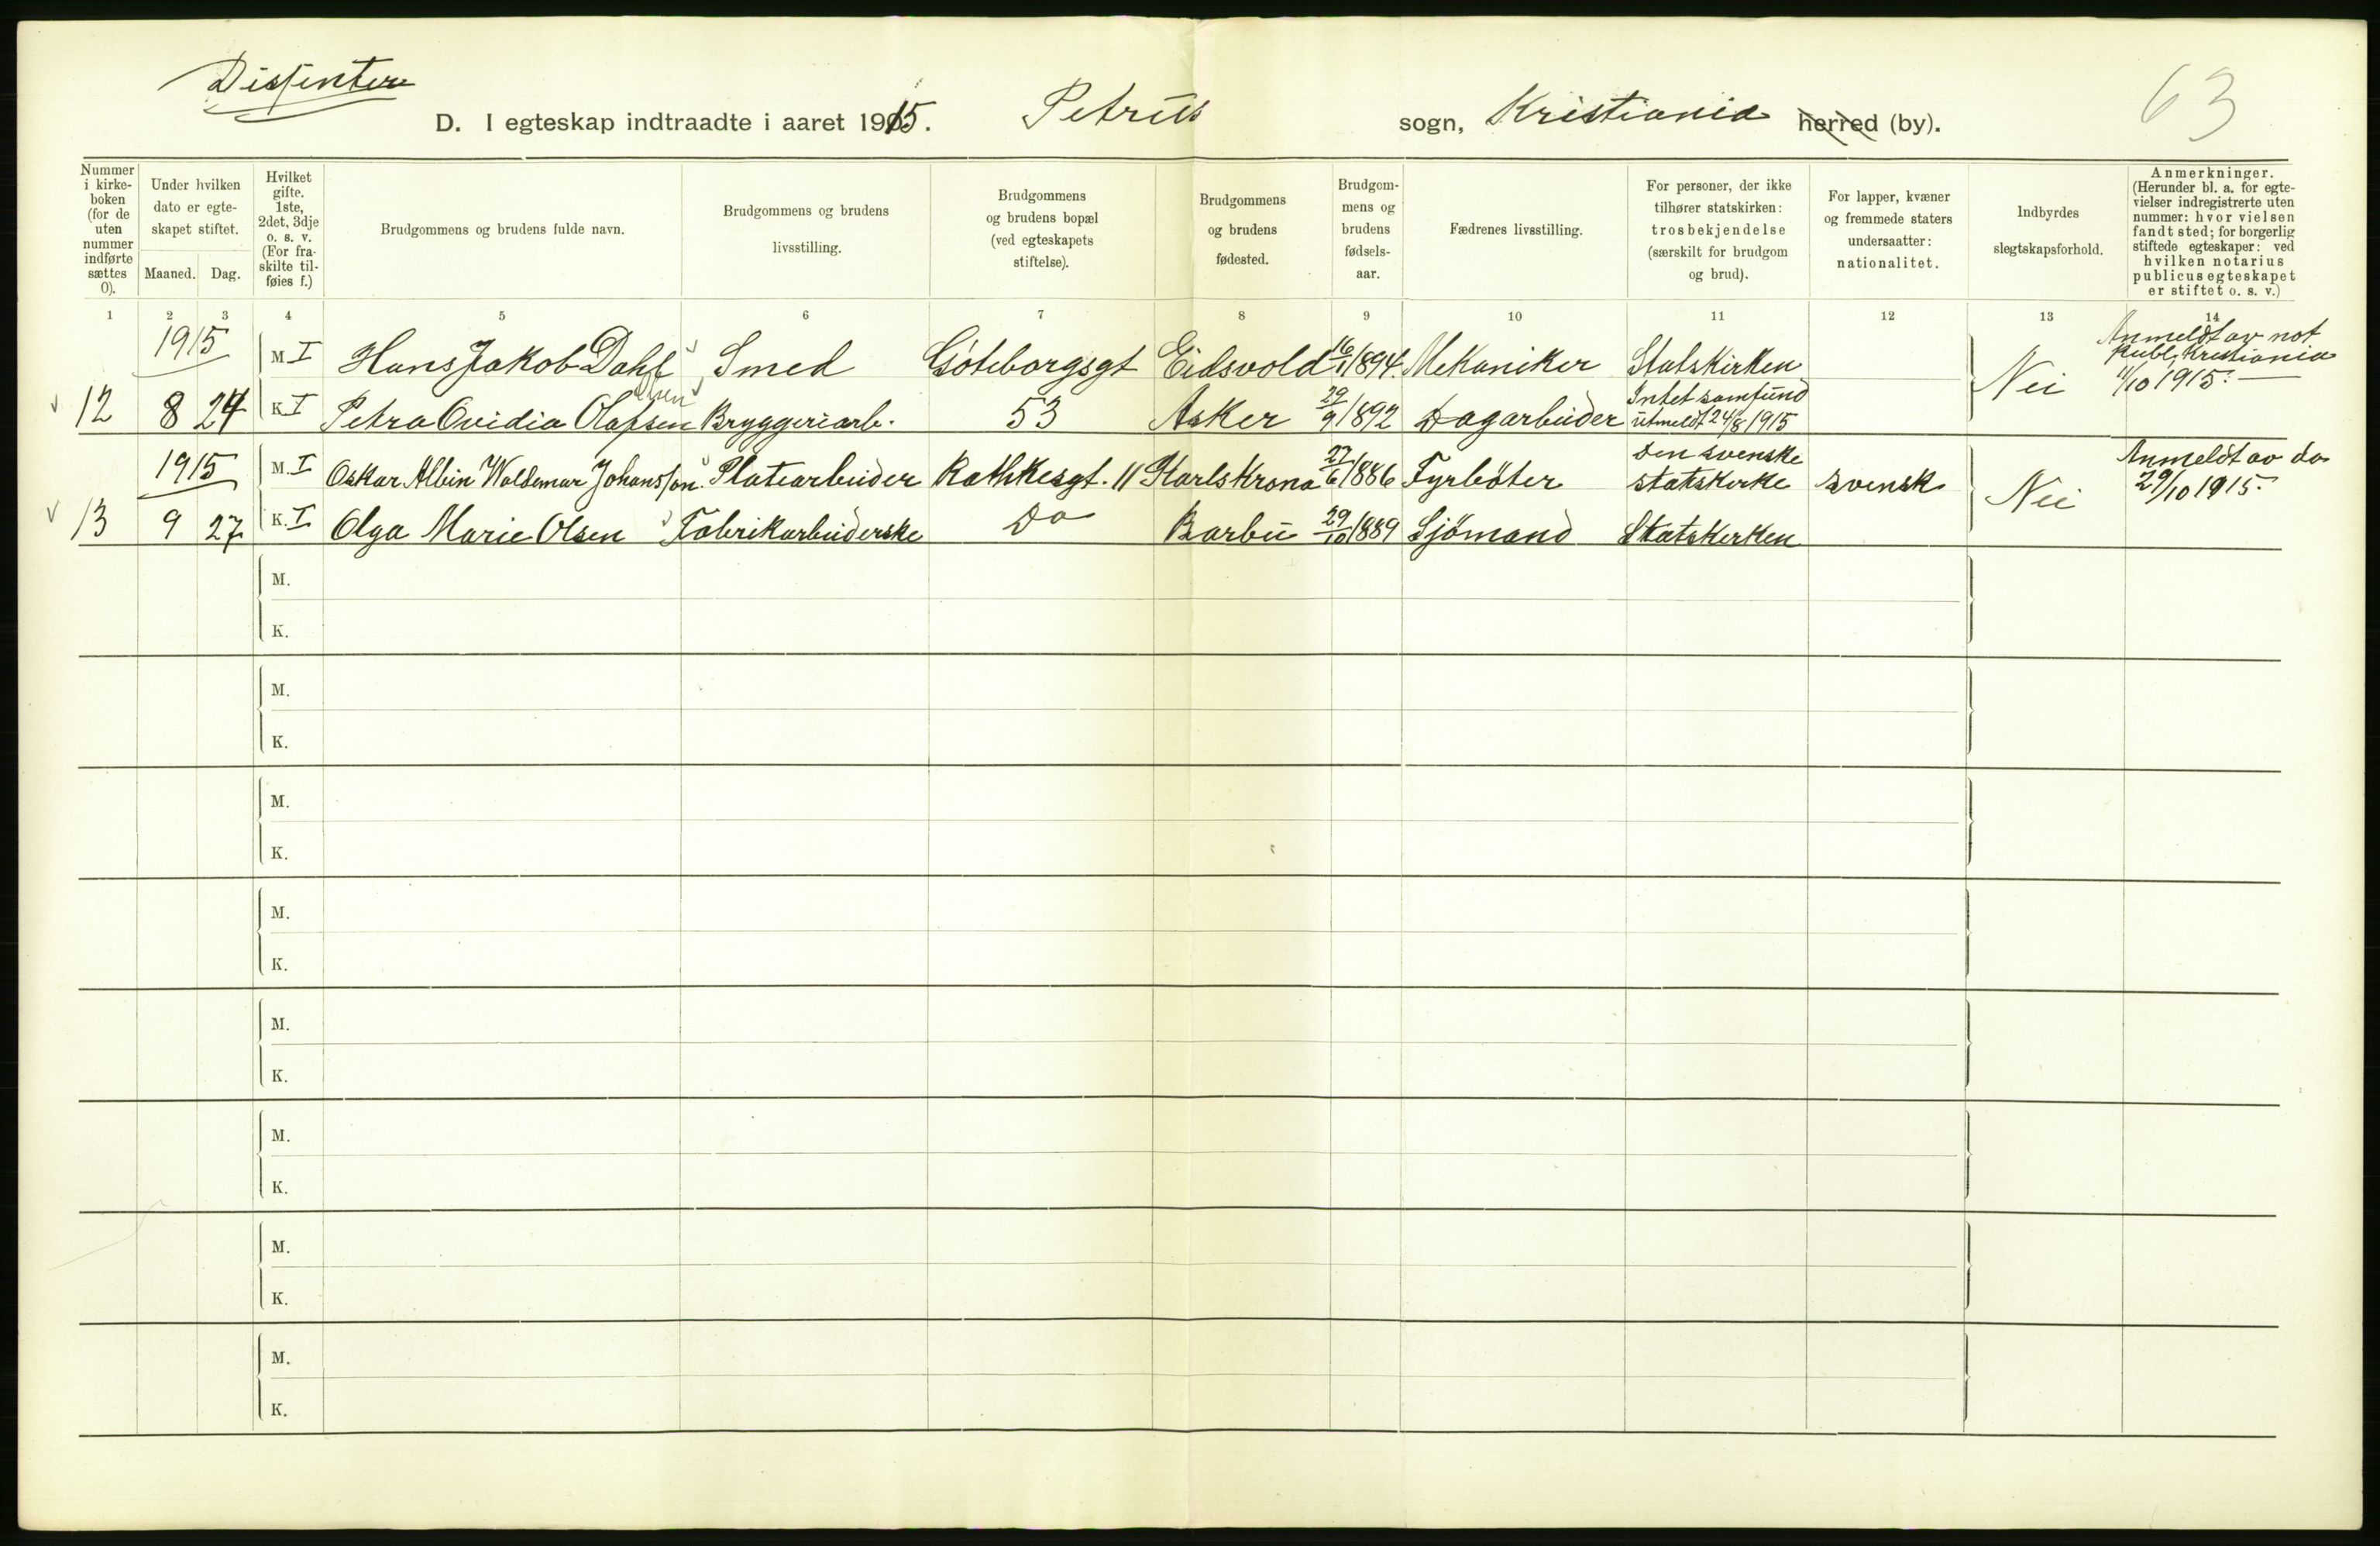 Dissentere
63
D. I egteskap indtraadte i aaret 1915. Petrus sogn, Kristiania herred (by).
Nummer i kirkeboken (for de uten nummer indførte sættes 0).
Under hvilken dato er egteskapet stiftet.
Maaned. Dag.
Hvilket gifte. 1ste, 2det, 3dje o. s. v. (For fraskilte tilføies f.)
Brudgommens og brudens fulde navn.
Brudgommens og brudens livsstilling.
Brudgommens og brudens bopæl (ved egteskapets stiftelse).
Brudgommens og brudens fødested.
Brudgommens og brudens fødselsaar.
Fædrenes livsstilling.
For personer, der ikke tilhører statskirken: trosbekjendelse (særskilt for brudgom og brud).
For lapper, kvæner og fremmede staters undersaatter: nationalitet.
Indbyrdes slegtskapsforhold.
Anmerkninger. (Herunder bl. a. for egtevielser indregistrerte uten nummer: hvor vielsen fandt sted; for borgerlig stiftede egteskaper: ved hvilken notarius publicus egteskapet er stiftet o. s. v.)
1 2 3 4 5 6 7 8 9 10 11 12 13 14
1915 M. I Hans Jakob Dahl Smed Göteborgsgt Eidsvold 16/1 1894. Mekaniker Statskirken Nei Anmeldt av not publ, Kristiania 11/10 1915.
12 8 24 K. I Petra Ovidia Olafsen Olsen Bryggeriarb. 53 Asker 29/9 1892 Dagarbeider Intet samfund utmeldt 24/8 1915
1915 M. I Oskar Albin Waldemar Johansson. Platearbeider Rathkesgt. 11 Karlskrona 27/6 1886 Fyrböter Den svenske statskirke svensk Nei Anmeldt av do 29/10 1915.
13 9 27 K. I Olga Marie Olsen Fabrikarbeiderske Do Barbu 29/10 1889 Sjömand Statskirken
M.
K.
M.
K.
M.
K.
M.
K.
M.
K.
M.
K.
M.
K.
M.
K.